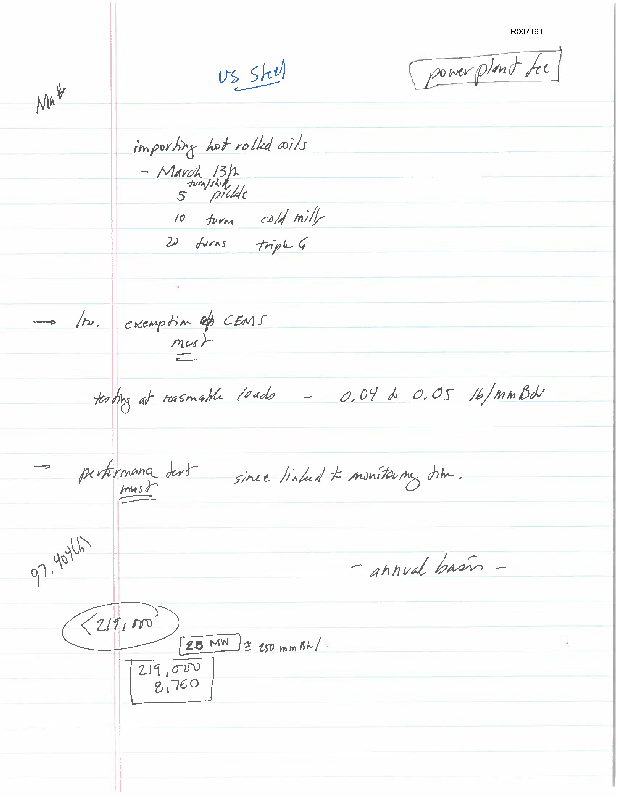 US Steel
power plant fee
importing hot rolled coils
- March 13th
turn/shift
5 pickle
10 turn cold mill
20 turns triple G
→ exemption of CEMS
must
testing at reasonable loads - 0.04 to 0.05 lb/mmBtu
→ performance test since linked to monitoring
must
97.404(b)
- annual basis -
<219,000
25 MW ≅ 250 mmBtu/
219,000
8,760